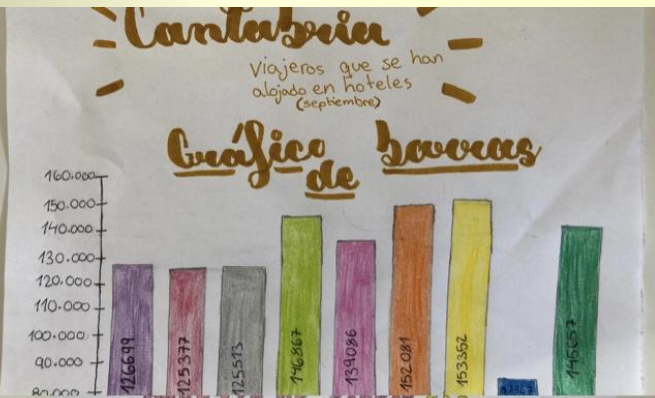 Cantabria
Viajeros que se han
alojado en hoteles
(septiembre)
Gráfico
de barras
160.000
150.000
140.000
130.000
120.000
110.000
100.000
90.000
80.000
126699
125377
125513
146867
139086
152081
153352
145657